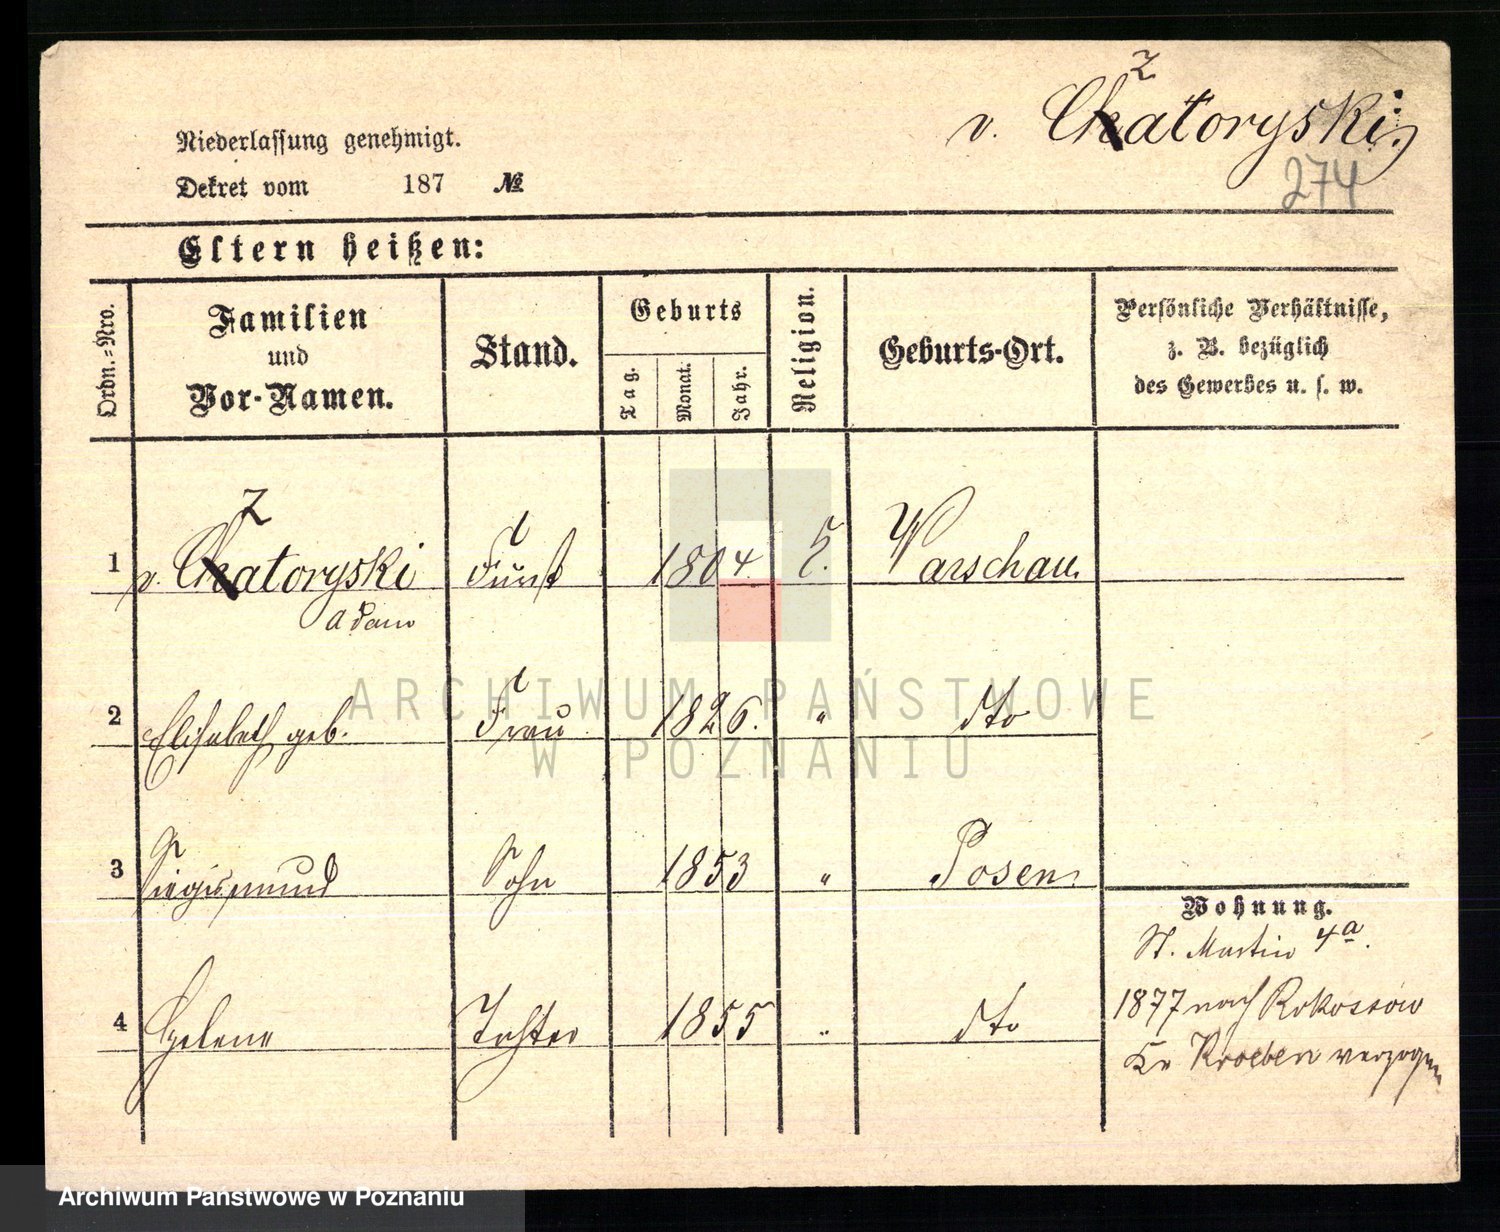 z
v. Chatoryski
274
Niederlassung genehmigt.
Dekret vom 187 №
Eltern heißen:
Ordn.-Nro.
Familien und Vor-Namen.
Stand.
Geburts
Tag. Monat. Jahr.
Religion.
Geburts-Ort.
Persönliche Verhältnisse,
z. B. bezüglich
des Gewerbes u. s. w.
z
1 v. Chatoryski Fürst 1804. k. Warschau
Adam
2 Elisabeth geb. Frau 1826. " dto
3 Siegismund Sohn 1853 " Posen
4 Helene Tochter 1855 " dto
Wohnung.
St. Martin 4a.
1877 nach Rokossowo
Kr Kroeben verzogen
ARCHIWUM PAŃSTWOWE
W POZNANIU
Archiwum Państwowe w Poznaniu